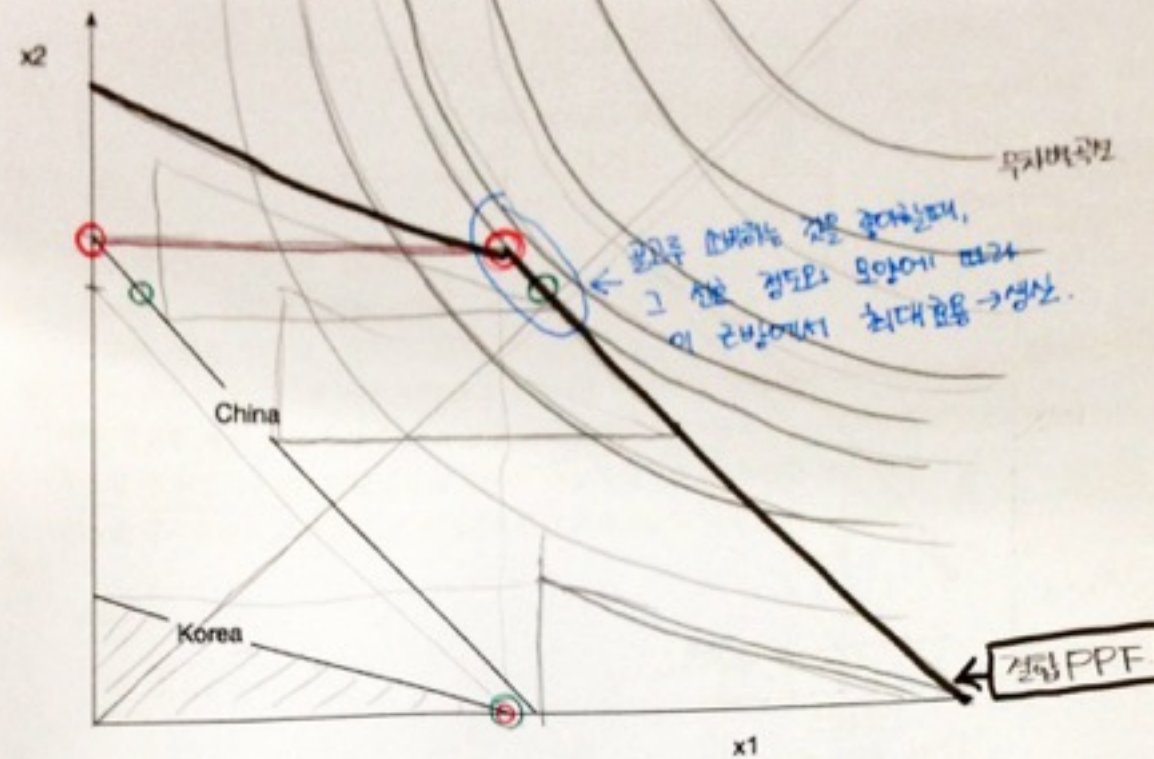 x2
무차별곡선
골고루 소비하는 것을 좋아할때,
그 선호 정도와 모양에 따라
이 근방에서 최대효용→생산.
China
Korea
결합PPF
x1